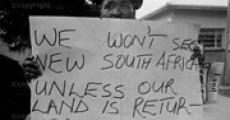 copyright
WE WON'T SEE
NEW SOUTH AFRICA
UNLESS OUR
LAND IS RETUR-